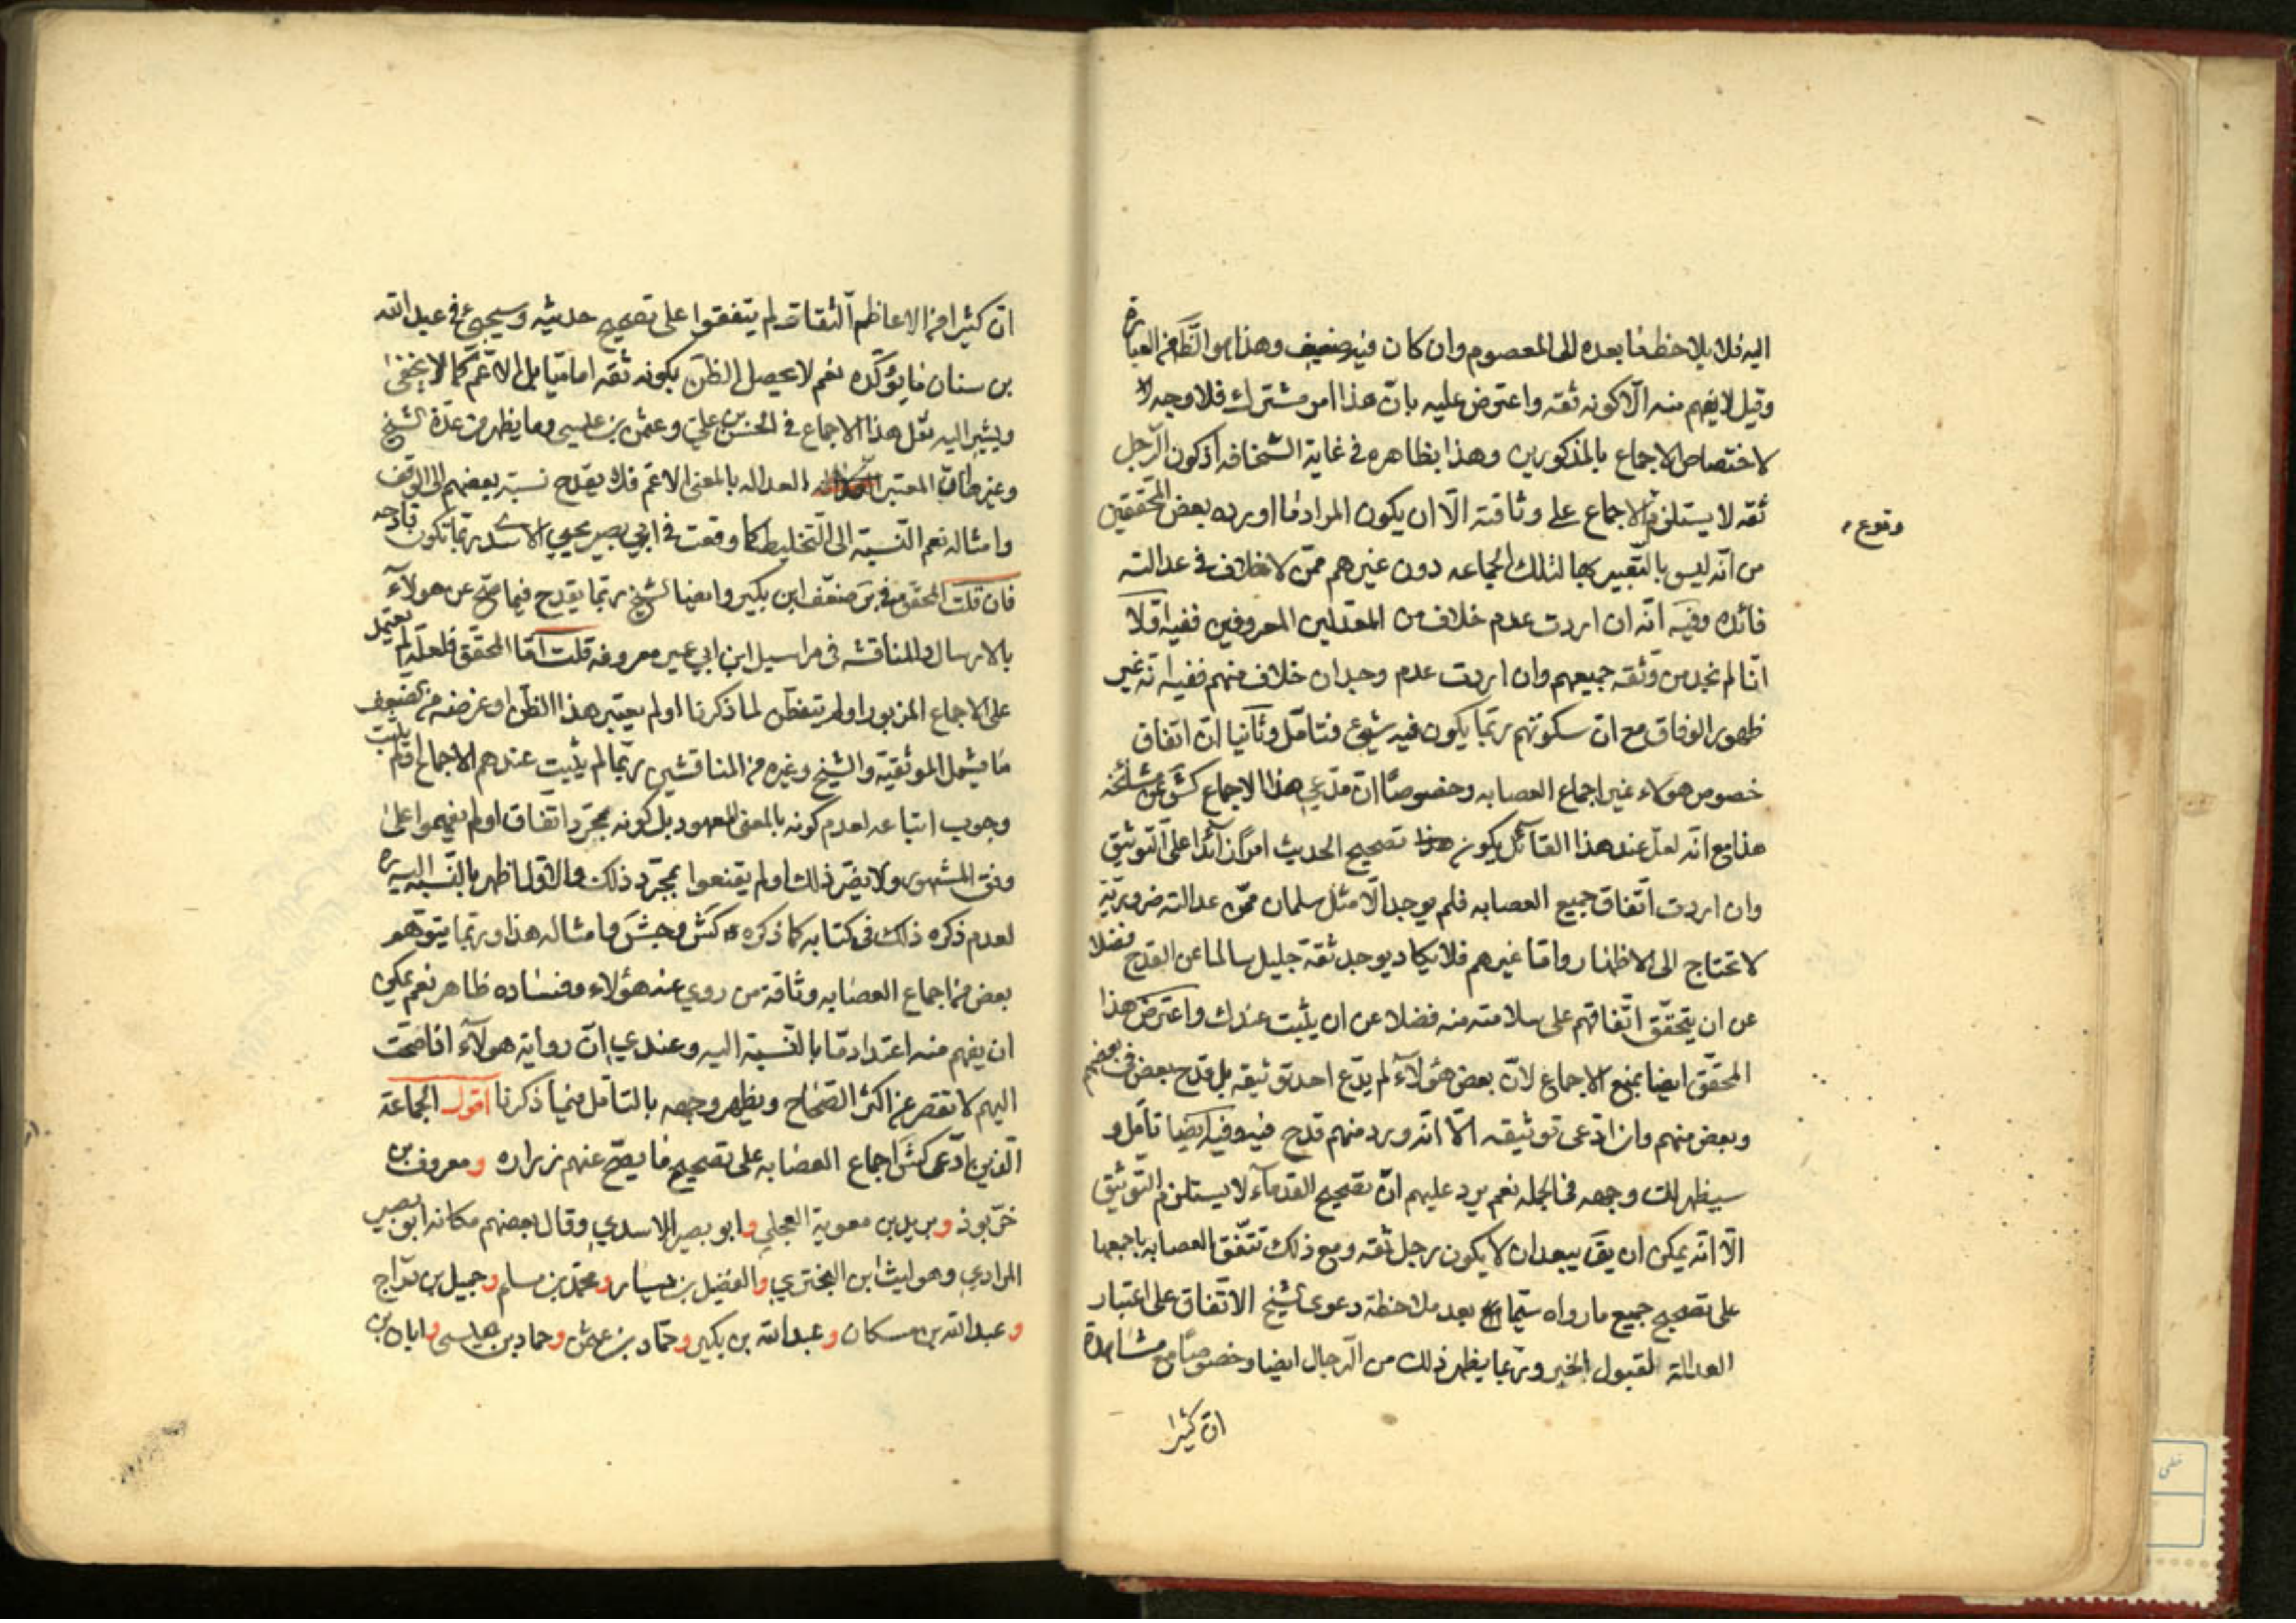 اليه فلا يلاحظ ما بعده الى المعصوم وان كان فيه ضعيف وهذا هو الظ من العبارة
وقيل لا يفهم منه الا كونه ثقه واعترض عليه بانّ هذا امر مشترك فلا وجه لا
لاختصاص الاجماع بالمذكورين وهذا بظاهره في غاية السخافه اذ كون الرجل
ثقه لا يستلزم الاجماع على وثاقته الّا ان يكون المراد ما اورده بعض المحققين
وقوع
من انّه ليس بالتعبير بها لتلك الجماعه دون غيرهم ممّن لا خلاف في عدالته
فائده وفيه انّه ان اردت عدم خلاف من المعدلين المعروفين ففيه اوّلا
انّا لم نجد من وثقه جميعهم وان اردت عدم وجدان خلاف منهم ففيه انّه غير
ظهور الوفاق مع انّ سكوتهم ربّما يكون فيه شيئ فتامّل وثانيا انّ اتفاق
خصوص هؤلاء غير اجماع العصابه وخصوصًا انّ مدّعي هذا الاجماع كش عن مشائخه
هذا مع انّه لعلّ عند هذا القائل يكون هذا تصحيح الحديث امرًا زائدا على التوثيق
وان اردت اتّفاق جميع العصابه فلم يوجد الّا مثل سلمان ممّن عدالته ضروريّة
لا تحتاج الى الاظهار وامّا غيرهم فلا يكاد يوجد ثقة جليل سالما عن القدح فضلا
عن ان يتحقّق اتّفاقهم على سلامته منه فضلا عن ان يثبت عندك واعترض هذا
المحقّق ايضا بمنع الاجماع لانّ بعض هؤلآء لم يدّع احد توثيقه بل قدح بعض في بعضهم
وبعض منهم وان ادّعى توثيقه الّا انّه ورد منهم قدح فيه وفيه ايضا تامّل و
سيظهر لك وجهه في الجمله نعم يرد عليهم انّ تصحيح القدمآء لا يستلزم التوثيق
الّا انّه يمكن ان يقَ يبعد ان لا يكون رجل ثقه ومع ذلك تتّفق العصابه باجمعها
على تصحيح جميع ما رواه سيّما بعد ملاحظة دعوى الشيخ الاتّفاق على اعتبار
العدالة لقبول الخبر وربّما يظهر ذلك من الرّجال ايضا وخصوصًا مع مشاهدة
انّ كثيرا
انّ كثيرا من الاعاظم الثقات لم يتفقوا على تصحيح حديثه وسيجيئ في عبد الله
بن سنان ما يؤكّده نعم لا يحصل الظنّ بكونه ثقه اماميّا بل الاعمّ كما لا يخفى
ويشير اليه نقل هذا الاجماع في الحسن بن علي وعثمن بن عيسى وما يظهر من عدّة الشيخ
وغيره انّ المعتبر العداله بالمعنى الاعمّ فلا يقدح نسبة بعضهم الى الوقف
وامثاله نعم النّسبة الى التخليط كما وقعت في ابي بصير يحيى الاسدي ربّما تكون قادحه
فان قلت المحقق في بَر ضعّف ابن بكير وايضا الشيخ ربّما يقدح فيما صحّ عن هولآء
بالارسال والمناقشه في مراسيل ابن ابي عمير معروفه قلت امّا المحقّق فلعلّه لم يعتمد
على الاجماع المزبور او لم يتفطّن لما ذكرنا او لم يعتبر هذا الظن او غرضه من الضعيف
ما يشمل الموثقية والشيخ وغيره من المناقشين ربّما لم يثبت عندهم الاجماع او لم يثبت
وجوب اتباعه لعدم كونه بالمعنى المعهود بل كونه مجرّد اتفاق او لم يفهموا على
وفق المشهور ولا يضرّ ذلك او لم يقنعوا بمجرّد ذلك والاوّل اظهر بالنّسبه اليه ره
لعدم ذكره ذلك في كتابه كما ذكره كش وجش وامثاله هذا وربما يتوهّم
بعض من اجماع العصابه وثاقة من روى عنه هؤلاء وفساده ظاهر نعم يمكن
ان يفهم منه اعتداد مّا بالنّسبة اليه وعندي انّ رواية هولآء اذا صحّت
اليهم لا تقصر عن اكثر الصّحاح ويظهر وجهه بالتامّل فيما ذكرنا اقول الجماعة
الّذين ادّعى كش اجماع العصابه على تصحيح ما يصحّ عنهم زراره ومعروف بن
خرّبوذ وبريد بن معوية العجلي وابو بصير الاسدي وقال بعضهم مكانه ابو بصير
المرادي وهو ليث ابن البختري والفضيل بن يسار ومحمّد بن مسلم وجميل بن درّاج
وعبد الله بن مسكان وعبد الله بن بكير وحمّاد بن عثمن وحماد بن عيسى وابان بن